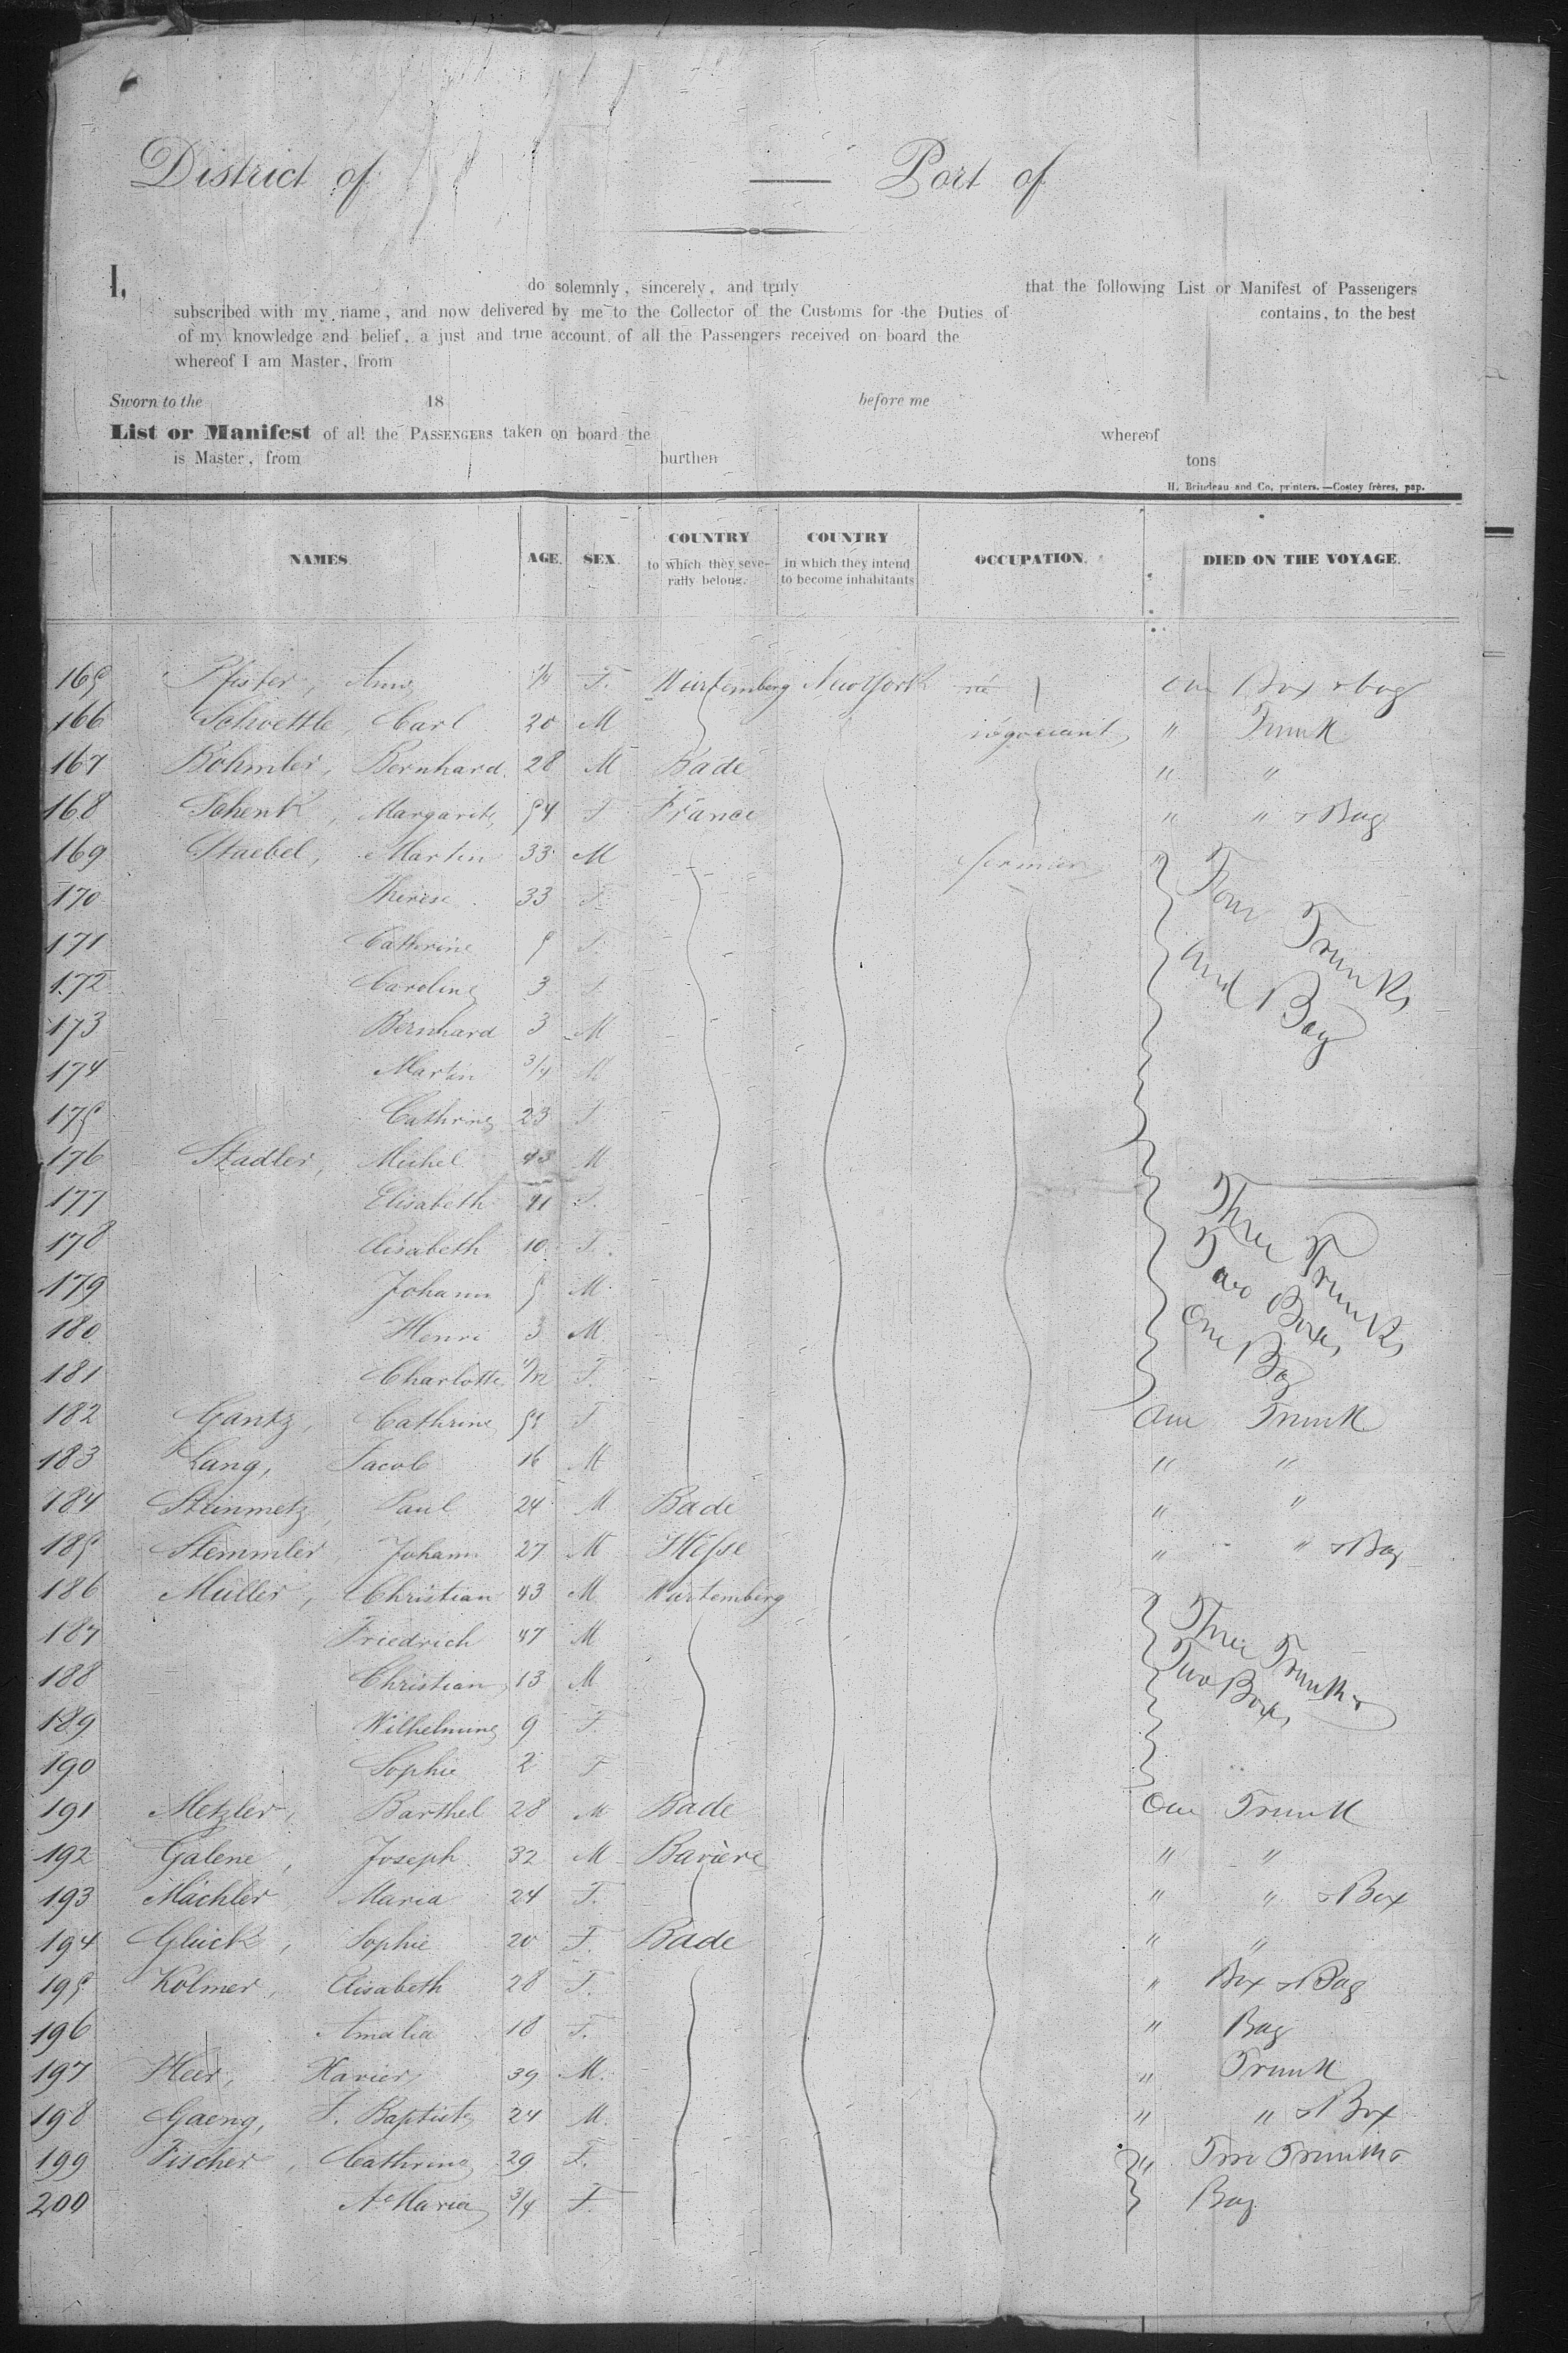 District of — Port of
I, do solemnly, sincerely, and truly that the following List or Manifest of Passengers
subscribed with my name, and now delivered by me to the Collector of the Customs for the Duties of contains, to the best
of my knowledge and belief, a just and true account of all the Passengers received on board the
whereof I am Master, from
Sworn to the 18 before me
List or Manifest of all the PASSENGERS taken on board the whereof
is Master, from burthen tons
H. Brindeau and Co, printers.—Costey frères, pap.
NAMES AGE. SEX. COUNTRY to which they severally belong. COUNTRY in which they intend to become inhabitants OCCUPATION. DIED ON THE VOYAGE.
165 Pfister, F. Würtemberg New York One Box & bag
166 Schoettle, Carl 20 M négociant " Trunk
167 Böhmler, Bernhard 28 M Bade " "
168 Schenk, Margarite 54 F France " " & Bag
169 Staebel, Martin 33 M fermier " Four Trunks
170 Therese 33 F.
171 Catherine 5 F. and Bag
172 Caroline 3 F.
173 Bernhard 3 M
174 Martin 3/4 M
175 Cathrine 23 F
176 Stadler, Michel 43 M
177 Elisabeth 41 F. Three Trunks
178 Elisabeth 10 F. Two Boxes
179 Johann 5 M.
180 Henri 3 M. One Bag
181 Charlotte 1/12 F.
182 Gantz, Cathrine F One Trunk
183 Lang, Jacob 16 M " "
184 Steinmetz, Paul 24 M Bade " "
185 Stemmler Johann 27 M Hesse " " & Bag
186 Müller, Christian 43 M Würtemberg Three Trunks
187 Friedrich 47 M Two Boxes
188 Christian 13 M
189 Wilhelmine 9 F.
190 Sophie 2 F
191 Metzler, Barthel 28 M Bade One Trunk
192 Galene, Joseph 32 M Bavière " "
193 Mächler Maria 24 F. " " & Box
194 Glück, Sophie 20 F. Bade " "
195 Kolmer, Elisabeth 28 F. " Box & Bag
196 Amalia 18 F. " Bag
197 Heer, Xavier 39 M. " Trunk
198 Gaeng, J. Baptiste 24 M. " " & Box
199 Fischer, Cathrine 29 F. " Two Trunks
200 A. Maria 3/4 F Bag